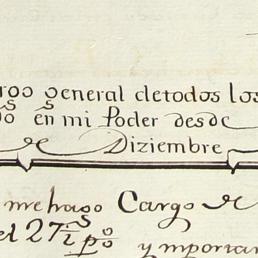 general de todos los
en mi Poder desde
de Diziembre
me hago Cargo de
el 27 y importan